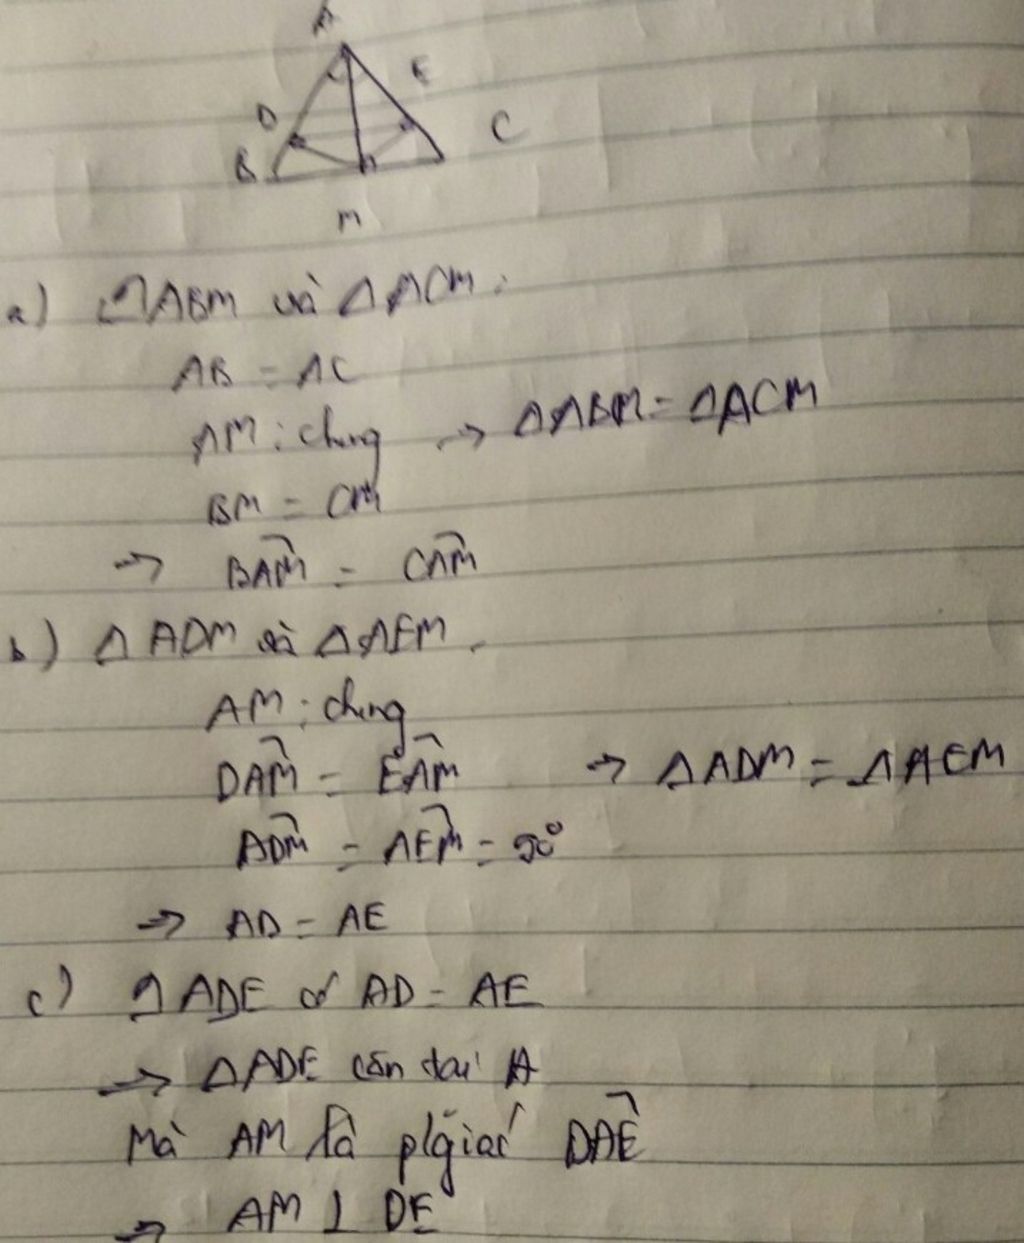 A
E
D
C
B
M
a) ΔABM và ΔACM:
AB = AC
AM: chung → ΔABM = ΔACM
BM = CM
→ BAM̂ = CAM̂
b) ΔADM và ΔAEM.
AM: chung
DAM̂ = EAM̂ → ΔADM = ΔAEM
ADM̂ = AEM̂ = 90°
→ AD = AE
c) ΔADE có AD = AE
→ ΔADE cân tại A
Mà AM là p/giác DAÊ
→ AM ⊥ DE